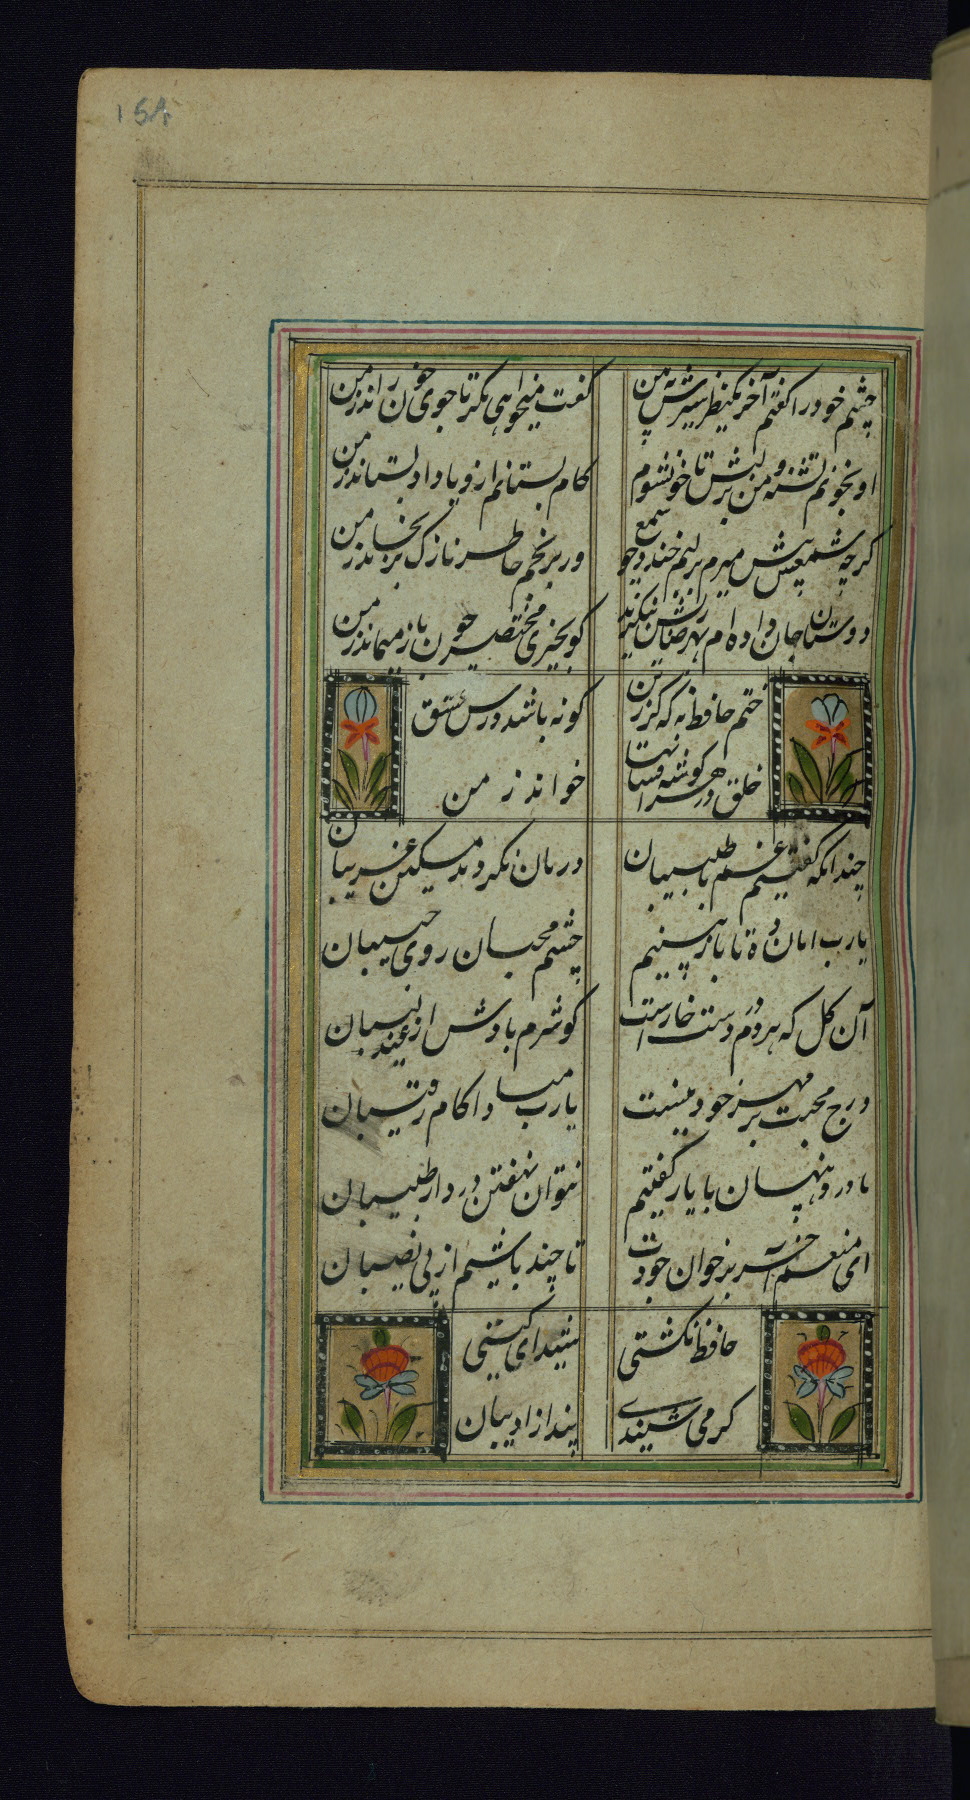 154
چشم خود را گفتم آخر یکنظر سیرش به من
گفت میخواهی مکر تا جوی خون راند ز من
او بخونم تشنه و من بر لبش تا خون شوم
کام بستانم ازو یا داد بستاند ز من
کر چه شمعش پیش میرم بر لبم خندد چو شمع
ور برنجم خاطر نازک برنجاند ز من
دوستان جان داده ام بهر دهانش بنگرید
کو بچیزی مختصر چون باز میماند ز من
ختم حافظ که کر زین
کونه باشد درس عشق
خلق در هر کوشه افسانها
خواند ز من
چندانکه گفتیم غم با طبیبان
درمان نکردند مسکین غریبان
یارب امان ده تا باز بینیم
چشم محبان روی حبیبان
آن کل که هر دم در دست خاریست
کو شرم بادش از عندلیبان
درج محبت بر مهر خود نیست
یارب مبادا کام رقیبان
ما درد پنهان با یار گفتیم
نتوان نهفتن درد از طبیبان
ای منعم آخر بر خوان جودت
تا چند باشیم از بی نصیبان
حافظ نکشتی
شیدای کیتی
کر می شنیدی
پند از ادیبان